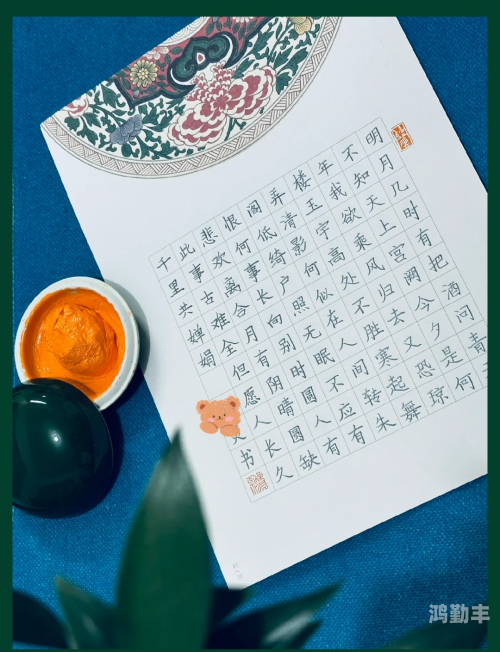 明月几时有把酒问青
不知天上宫阙今夕是何
年我欲乘风归去又恐琼
楼玉宇高处不胜寒起舞
弄清影何似在人间转朱
阁低绮户照无眠不应有
恨何事长向别时圆人有
悲欢离合月有阴晴圆缺
此事古难全但愿人长久
千里共婵娟
书
鸿勤丰